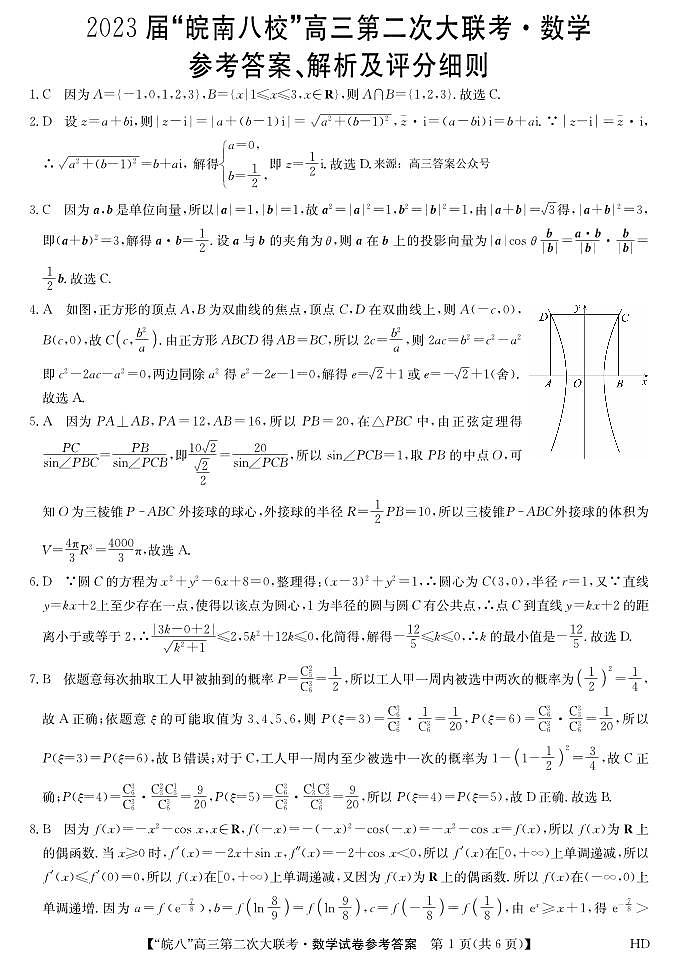 2023 届“皖南八校”高三第二次大联考·数学
参考答案、解析及评分细则
1. C　因为 A={-1,0,1,2,3},B={x|1≤x≤3,x∈R},则 A∩B={1,2,3}.故选 C.
2. D　设 z=a+bi,则|z-i|=|a+(b-1)i|=√(a²+(b-1)²),z̄·i=(a-bi)i=b+ai.∵|z-i|=z̄·i,
∴√(a²+(b-1)²)=b+ai,解得{a=0, b=1/2, 即 z=1/2 i.故选 D.来源：高三答案公众号
3. C　因为 a,b 是单位向量,所以|a|=1,|b|=1,故 a²=|a|²=1,b²=|b|²=1,由|a+b|=√3得,|a+b|²=3,
即(a+b)²=3,解得 a·b=1/2.设 a 与 b 的夹角为 θ,则 a 在 b 上的投影向量为|a|cos θ b/|b|=a·b/|b|·b/|b|=
1/2 b.故选 C.
4. A　如图,正方形的顶点 A,B 为双曲线的焦点,顶点 C,D 在双曲线上,则 A(-c,0),
B(c,0),故 C(c,b²/a).由正方形 ABCD 得 AB=BC,所以 2c=b²/a,则 2ac=b²=c²-a²
即 c²-2ac-a²=0,两边同除 a² 得 e²-2e-1=0,解得 e=√2+1 或 e=-√2+1(舍).
故选 A.
D y C
A O B x
5. A　因为 PA⊥AB,PA=12,AB=16,所以 PB=20,在△PBC 中,由正弦定理得
PC/sin∠PBC=PB/sin∠PCB,即10√2/(√2/2)=20/sin∠PCB,所以 sin∠PCB=1,取 PB 的中点 O,可
知 O 为三棱锥 P-ABC 外接球的球心,外接球的半径 R=1/2 PB=10,所以三棱锥P-ABC外接球的体积为
V=4π/3 R³=4000/3 π,故选 A.
6. D　∵圆 C 的方程为 x²+y²-6x+8=0,整理得:(x-3)²+y²=1,∴圆心为 C(3,0),半径 r=1,又∵直线
y=kx+2上至少存在一点,使得以该点为圆心,1 为半径的圆与圆 C 有公共点,∴点 C 到直线 y=kx+2 的距
离小于或等于 2,∴|3k-0+2|/√(k²+1)≤2,5k²+12k≤0,化简得,解得-12/5≤k≤0,∴k 的最小值是-12/5.故选 D.
7. B　依题意每次抽取工人甲被抽到的概率 P=C₅²/C₆³=1/2,所以工人甲一周内被选中两次的概率为(1/2)²=1/4,
故 A 正确;依题意 ξ 的可能取值为 3、4、5、6,则 P(ξ=3)=C₆³/C₆³·1/C₆³=1/20,P(ξ=6)=C₆³/C₆³·C₃³/C₆³=1/20,所以
P(ξ=3)=P(ξ=6),故 B 错误;对于 C,工人甲一周内至少被选中一次的概率为 1-(1-1/2)²=3/4,故 C 正
确;P(ξ=4)=C₆³/C₆³·C₃²C₃¹/C₆³=9/20,P(ξ=5)=C₆³/C₆³·C₃¹C₃²/C₆³=9/20,所以 P(ξ=4)=P(ξ=5),故 D 正确.故选 B.
8. B　因为 f(x)=-x²-cos x,x∈R,f(-x)=-(-x)²-cos(-x)=-x²-cos x=f(x),所以 f(x)为 R 上
的偶函数.当 x≥0 时,f′(x)=-2x+sin x,f″(x)=-2+cos x<0,所以 f′(x)在[0,+∞)上单调递减,所以
f′(x)≤f′(0)=0,所以 f(x)在[0,+∞)上单调递减,又因为 f(x)为 R 上的偶函数.所以 f(x)在(-∞,0)上
单调递增.因为 a=f(e^(-7/8)),b=f(ln 8/9)=f(ln 9/8),c=f(-1/8)=f(1/8),由 eˣ≥x+1,得 e^(-7/8)>
【“皖八”高三第二次大联考·数学试卷参考答案　第 1 页(共 6 页)】　HD